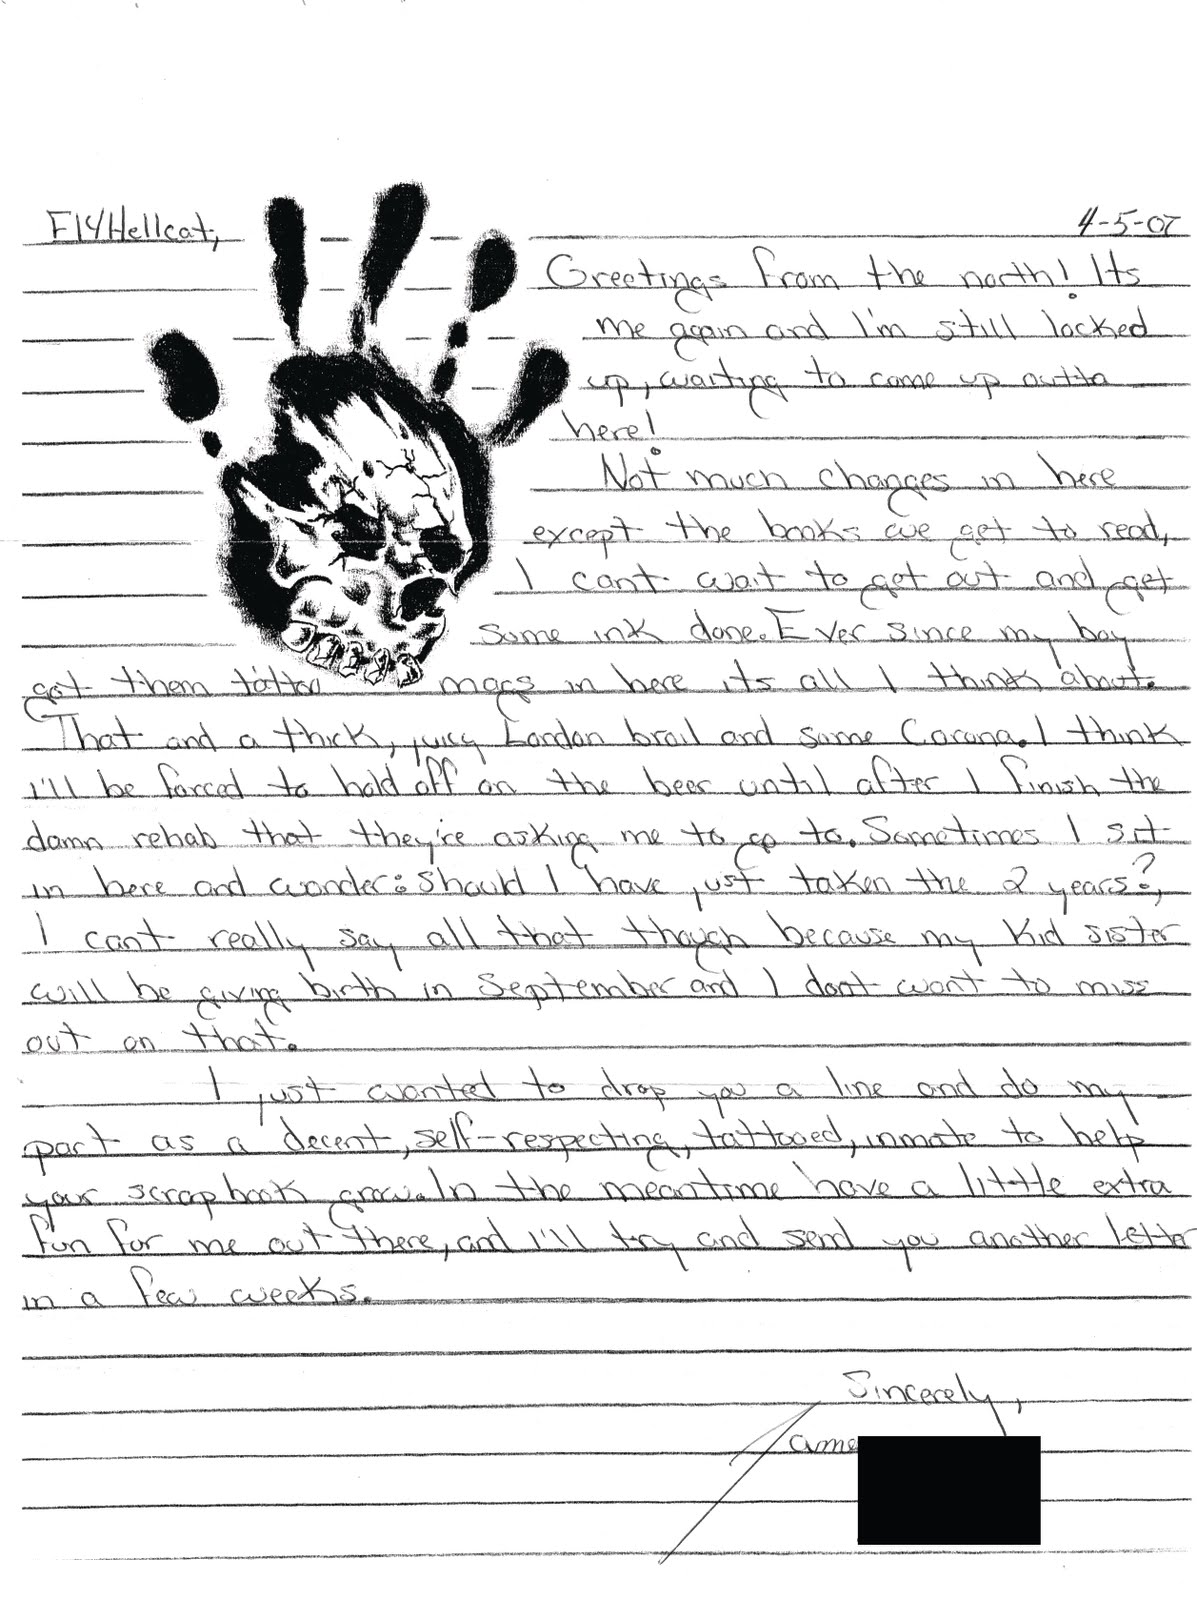 F14Hellcat,
4-5-07
Greetings from the north! Its
me again and I'm still locked
up, waiting to come up outta
here!
Not much changes in here
except the books we get to read,
I cant wait to get out and get
some ink done. Ever since my boy
got them tattoo mags in here its all I think about.
That and a thick, juicy London broil and some Corona. I think
I'll be forced to hold off on the beer until after I finish the
damn rehab that they're asking me to go to. Sometimes I sit
in here and wonder: should I have just taken the 2 years?,
I cant really say all that though because my kid sister
will be giving birth in September and I dont want to miss
out on that.
I just wanted to drop you a line and do my
part as a decent, self-respecting, tattooed, inmate to help
your scrapbook grow. In the meantime have a little extra
fun for me out there, and I'll try and send you another letter
in a few weeks.
Sincerely,